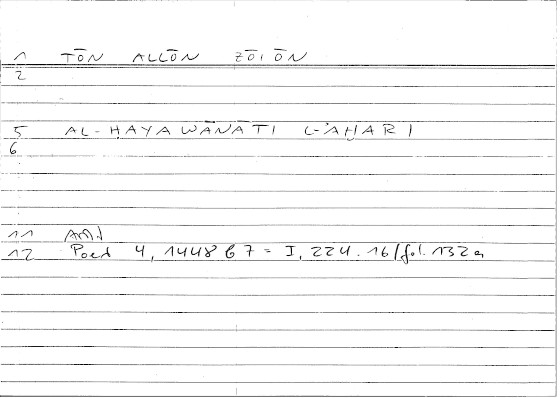 1 TŌN ALLŌN ZŌIŌN
2
5 AL-ḤAYAWĀNĀTI L-ʾAHARI
6
11 AMJ
12 Poet 4, 1448 b 7 = I, 224.16/fol. 132a